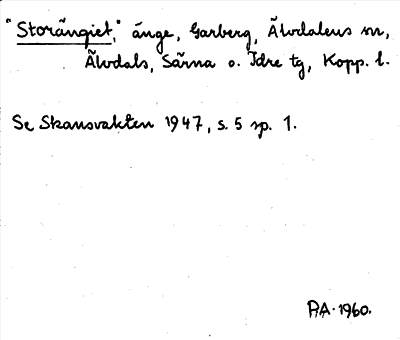 "Storängiet," änge, Garberg, Älvdalens sn,
Älvdals, Särna o. Idre tg, Kopp. l.
Se Skansvakten 1947, s. 5 sp. 1.
RA. 1960.